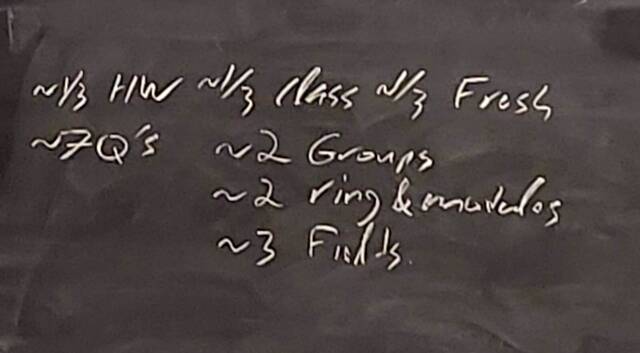 ~1/3 HW ~1/3 Class ~1/3 Fresh
~7 Q's ~2 Groups
~2 ring & modules
~3 Fields.